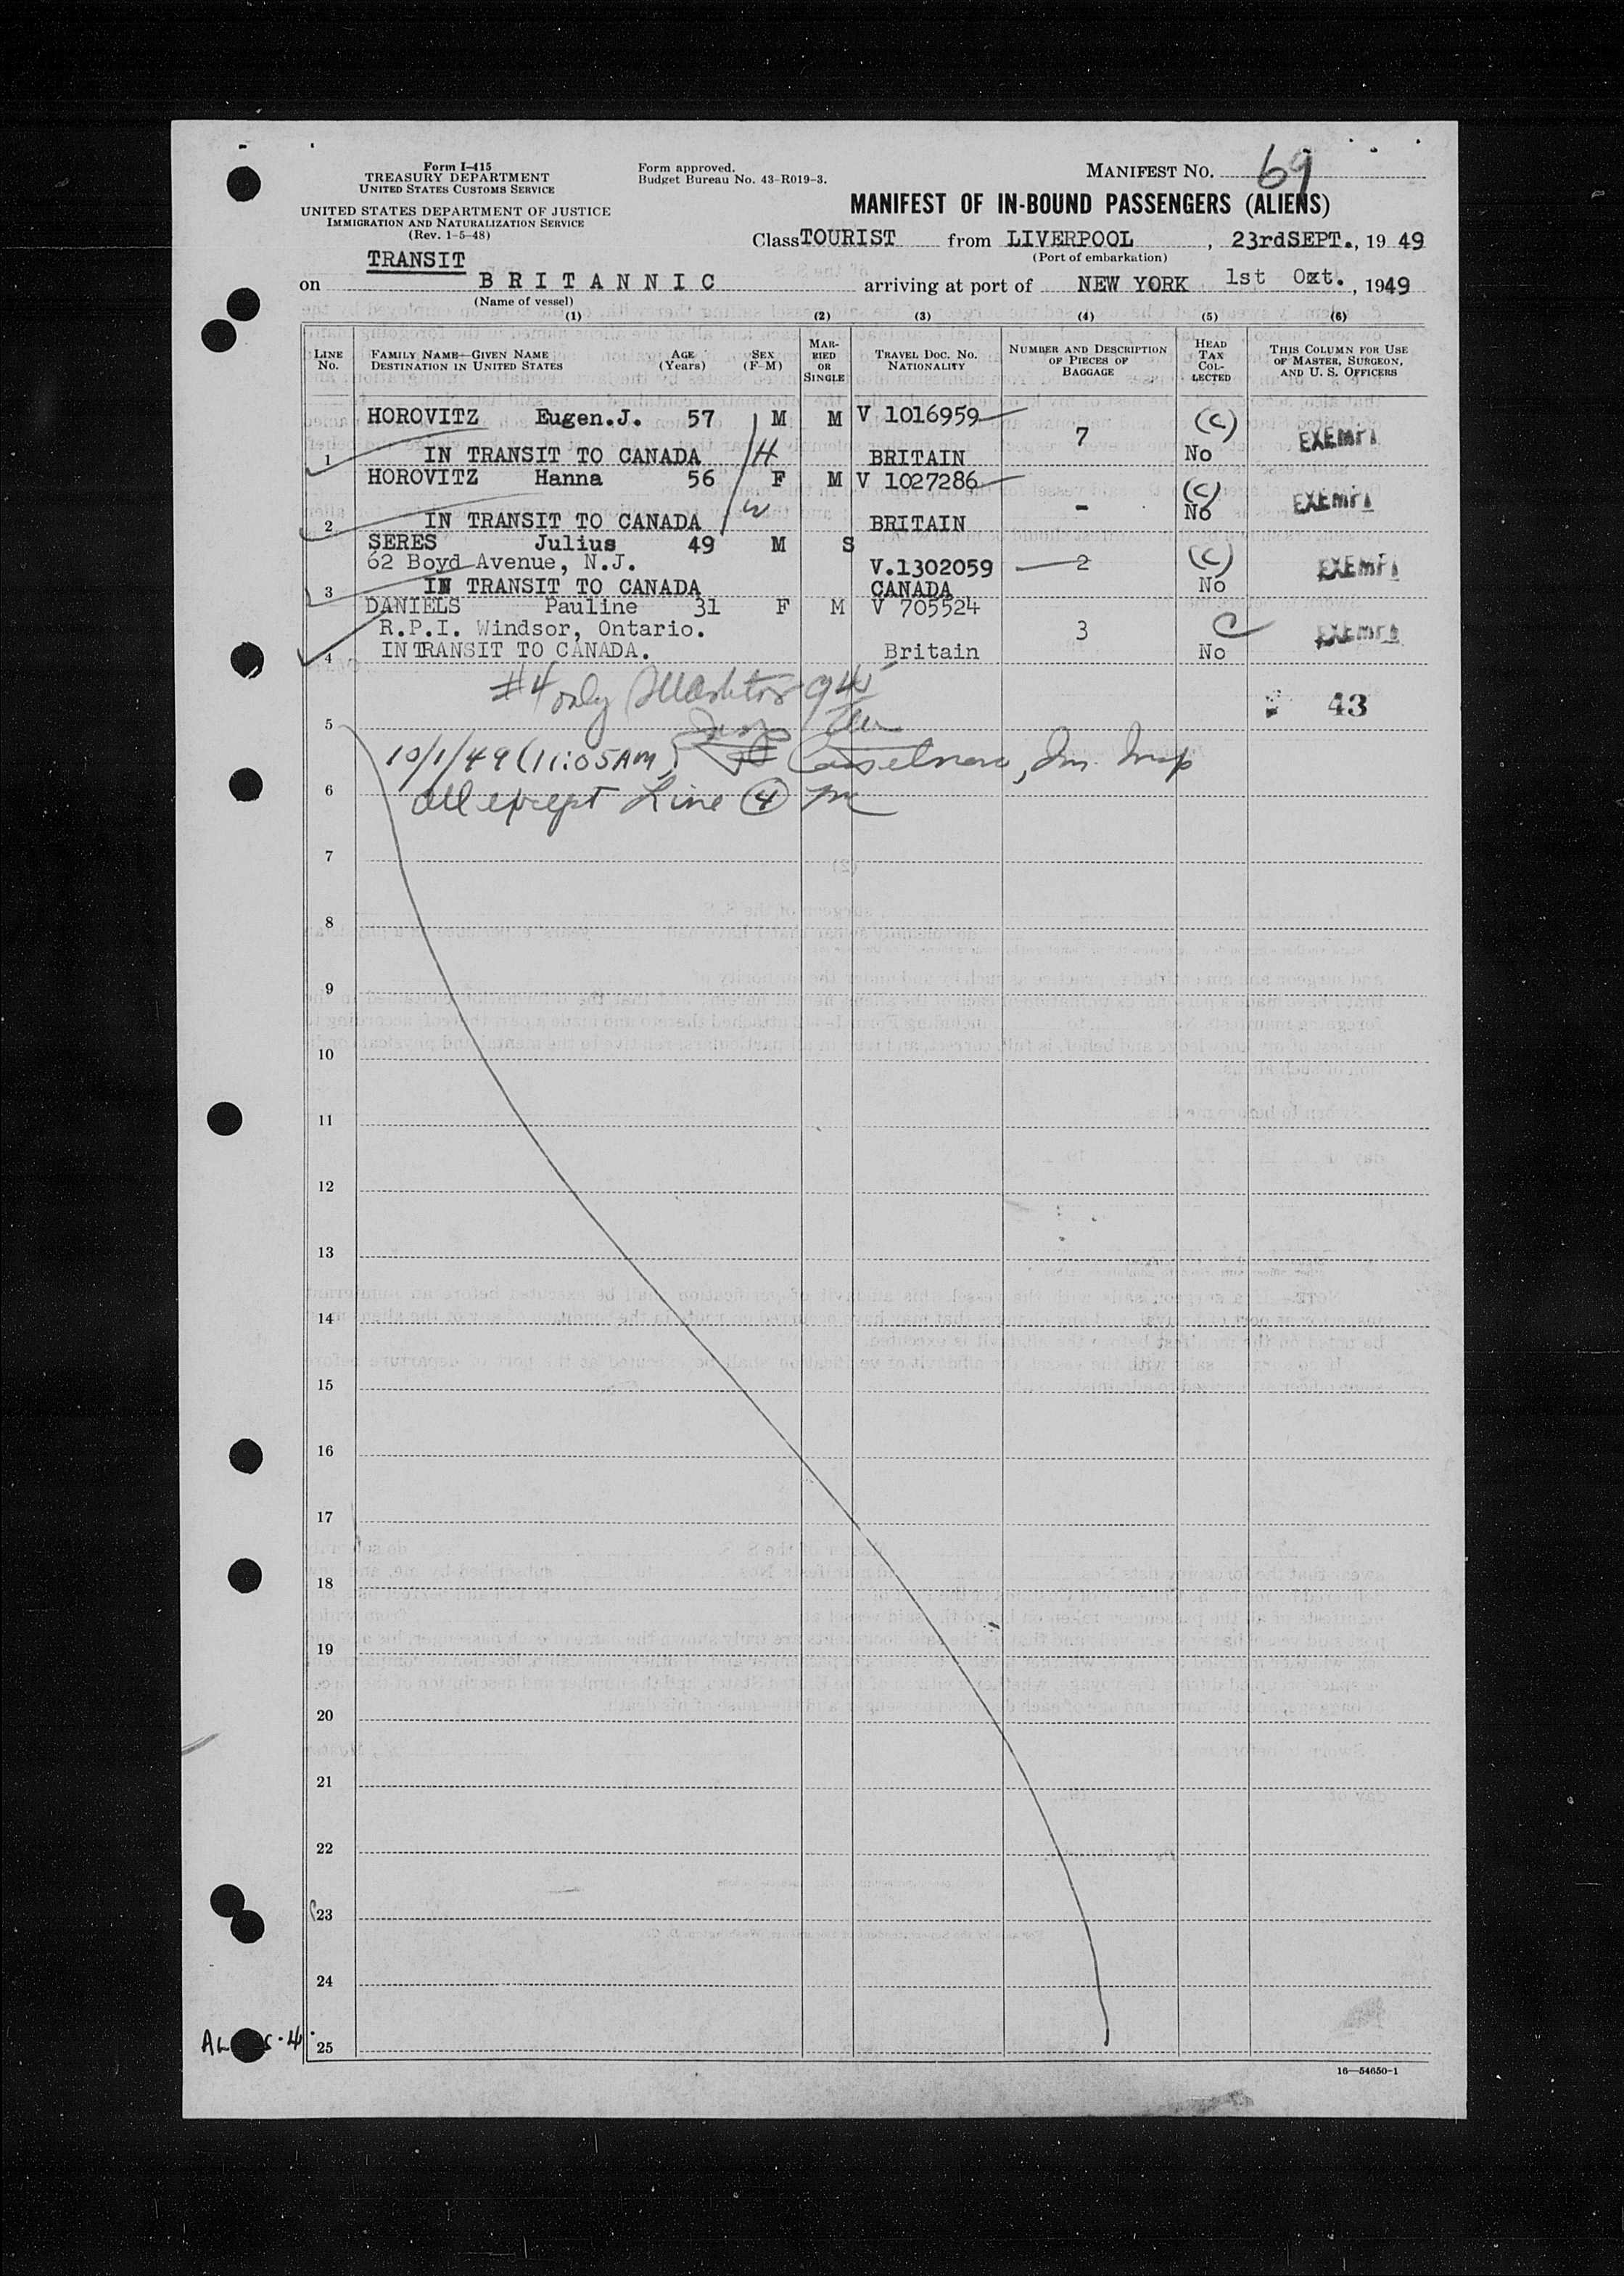 Form I-415
TREASURY DEPARTMENT
UNITED STATES CUSTOMS SERVICE
UNITED STATES DEPARTMENT OF JUSTICE
IMMIGRATION AND NATURALIZATION SERVICE
(Rev. 1-5-48)
Form approved.
Budget Bureau No. 43-R019-3.
MANIFEST NO. 69
MANIFEST OF IN-BOUND PASSENGERS (ALIENS)
Class TOURIST from LIVERPOOL, 23rdSEPT., 19 49
(Port of embarkation)
TRANSIT
on BRITANNIC arriving at port of NEW YORK 1st Oxt., 1949
(Name of vessel)
(1) (2) (3) (4) (5) (6)
LINE NO. FAMILY NAME—GIVEN NAME DESTINATION IN UNITED STATES AGE (Years) SEX (F-M) MARRIED OR SINGLE TRAVEL DOC. NO. NATIONALITY NUMBER AND DESCRIPTION OF PIECES OF BAGGAGE HEAD TAX COLLECTED THIS COLUMN FOR USE OF MASTER, SURGEON, AND U. S. OFFICERS
HOROVITZ Eugen.J. 57 M M V 1016959 7 (C) EXEMPT
1 IN TRANSIT TO CANADA H BRITAIN No
HOROVITZ Hanna 56 F M V 1027286 - (C) EXEMPT
2 IN TRANSIT TO CANADA W BRITAIN No
SERES Julius 49 M S
62 Boyd Avenue, N.J. V.1302059 2 (C) EXEMPT
3 IN TRANSIT TO CANADA CANADA No
DANIELS Pauline 31 F M V 705524
R.P.I. Windsor, Ontario. 3 C EXEMPT
4 INTRANSIT TO CANADA. Britain No
#4 only
43
5
10/1/49 (11:05AM) Casselman, Im. Insp
6 all except Line 4
7
8
9
10
11
12
13
14
15
16
17
18
19
20
21
22
23
24
25
16—54650-1